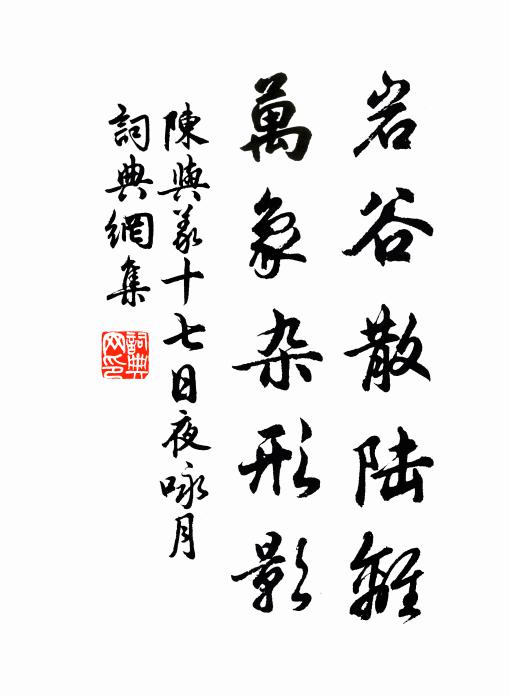 岩谷散陆離
萬象杂形影
陳與義十七日夜咏月
詞典網集
詞典網印